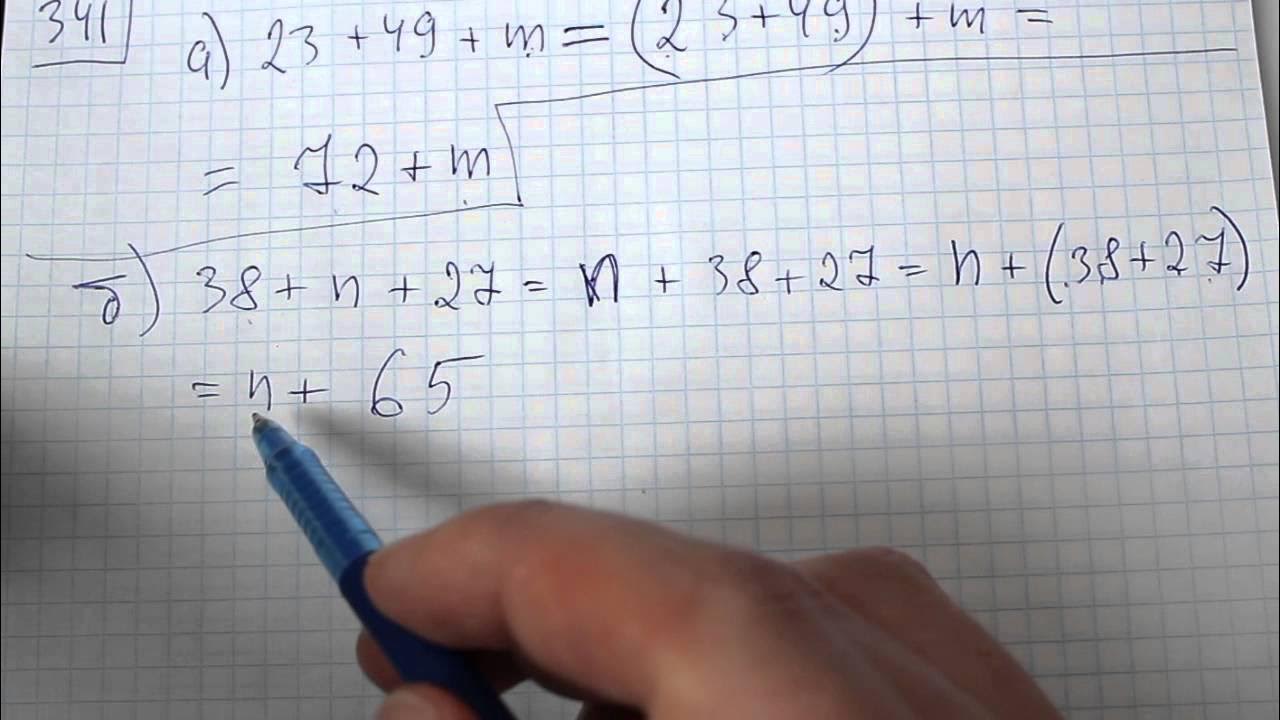 341 а) 23 + 49 + m = (23 + 49) + m =
= 72 + m
б) 38 + n + 27 = n + 38 + 27 = n + (38 + 27)
= n + 65